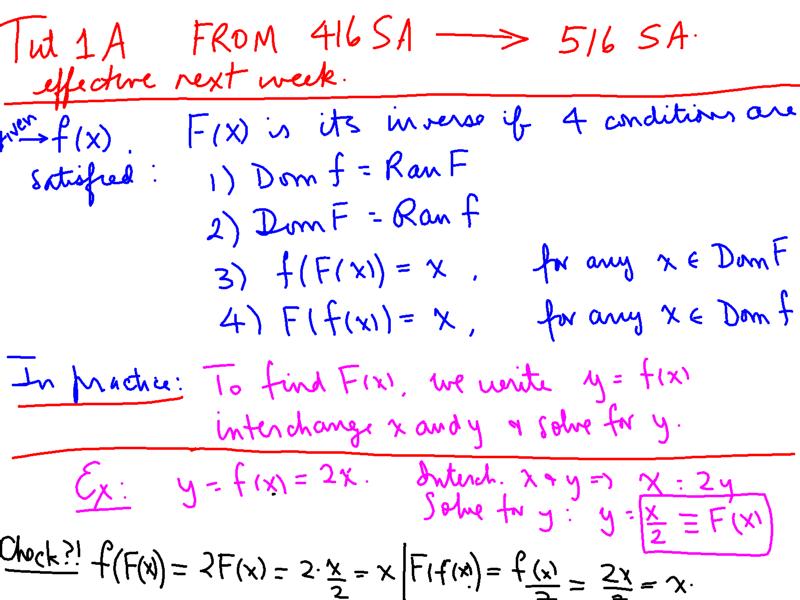 Tut 1A FROM 416 SA → 516 SA.
effective next week.
given → f(x). F(x) is its inverse if 4 conditions are
satisfied: 1) Dom f = Ran F
2) Dom F = Ran f
3) f(F(x)) = x, for any x ∈ Dom F
4) F(f(x)) = x, for any x ∈ Dom f
In practice: To find F(x), we write y = f(x)
interchange x and y & solve for y.
Ex: y = f(x) = 2x. Interch. x & y ⇒ x = 2y
Solve for y: y = x/2 ≡ F(x)
Check?! f(F(x)) = 2F(x) = 2·x/2 = x | F(f(x)) = f(x)/2 = 2x/2 = x.